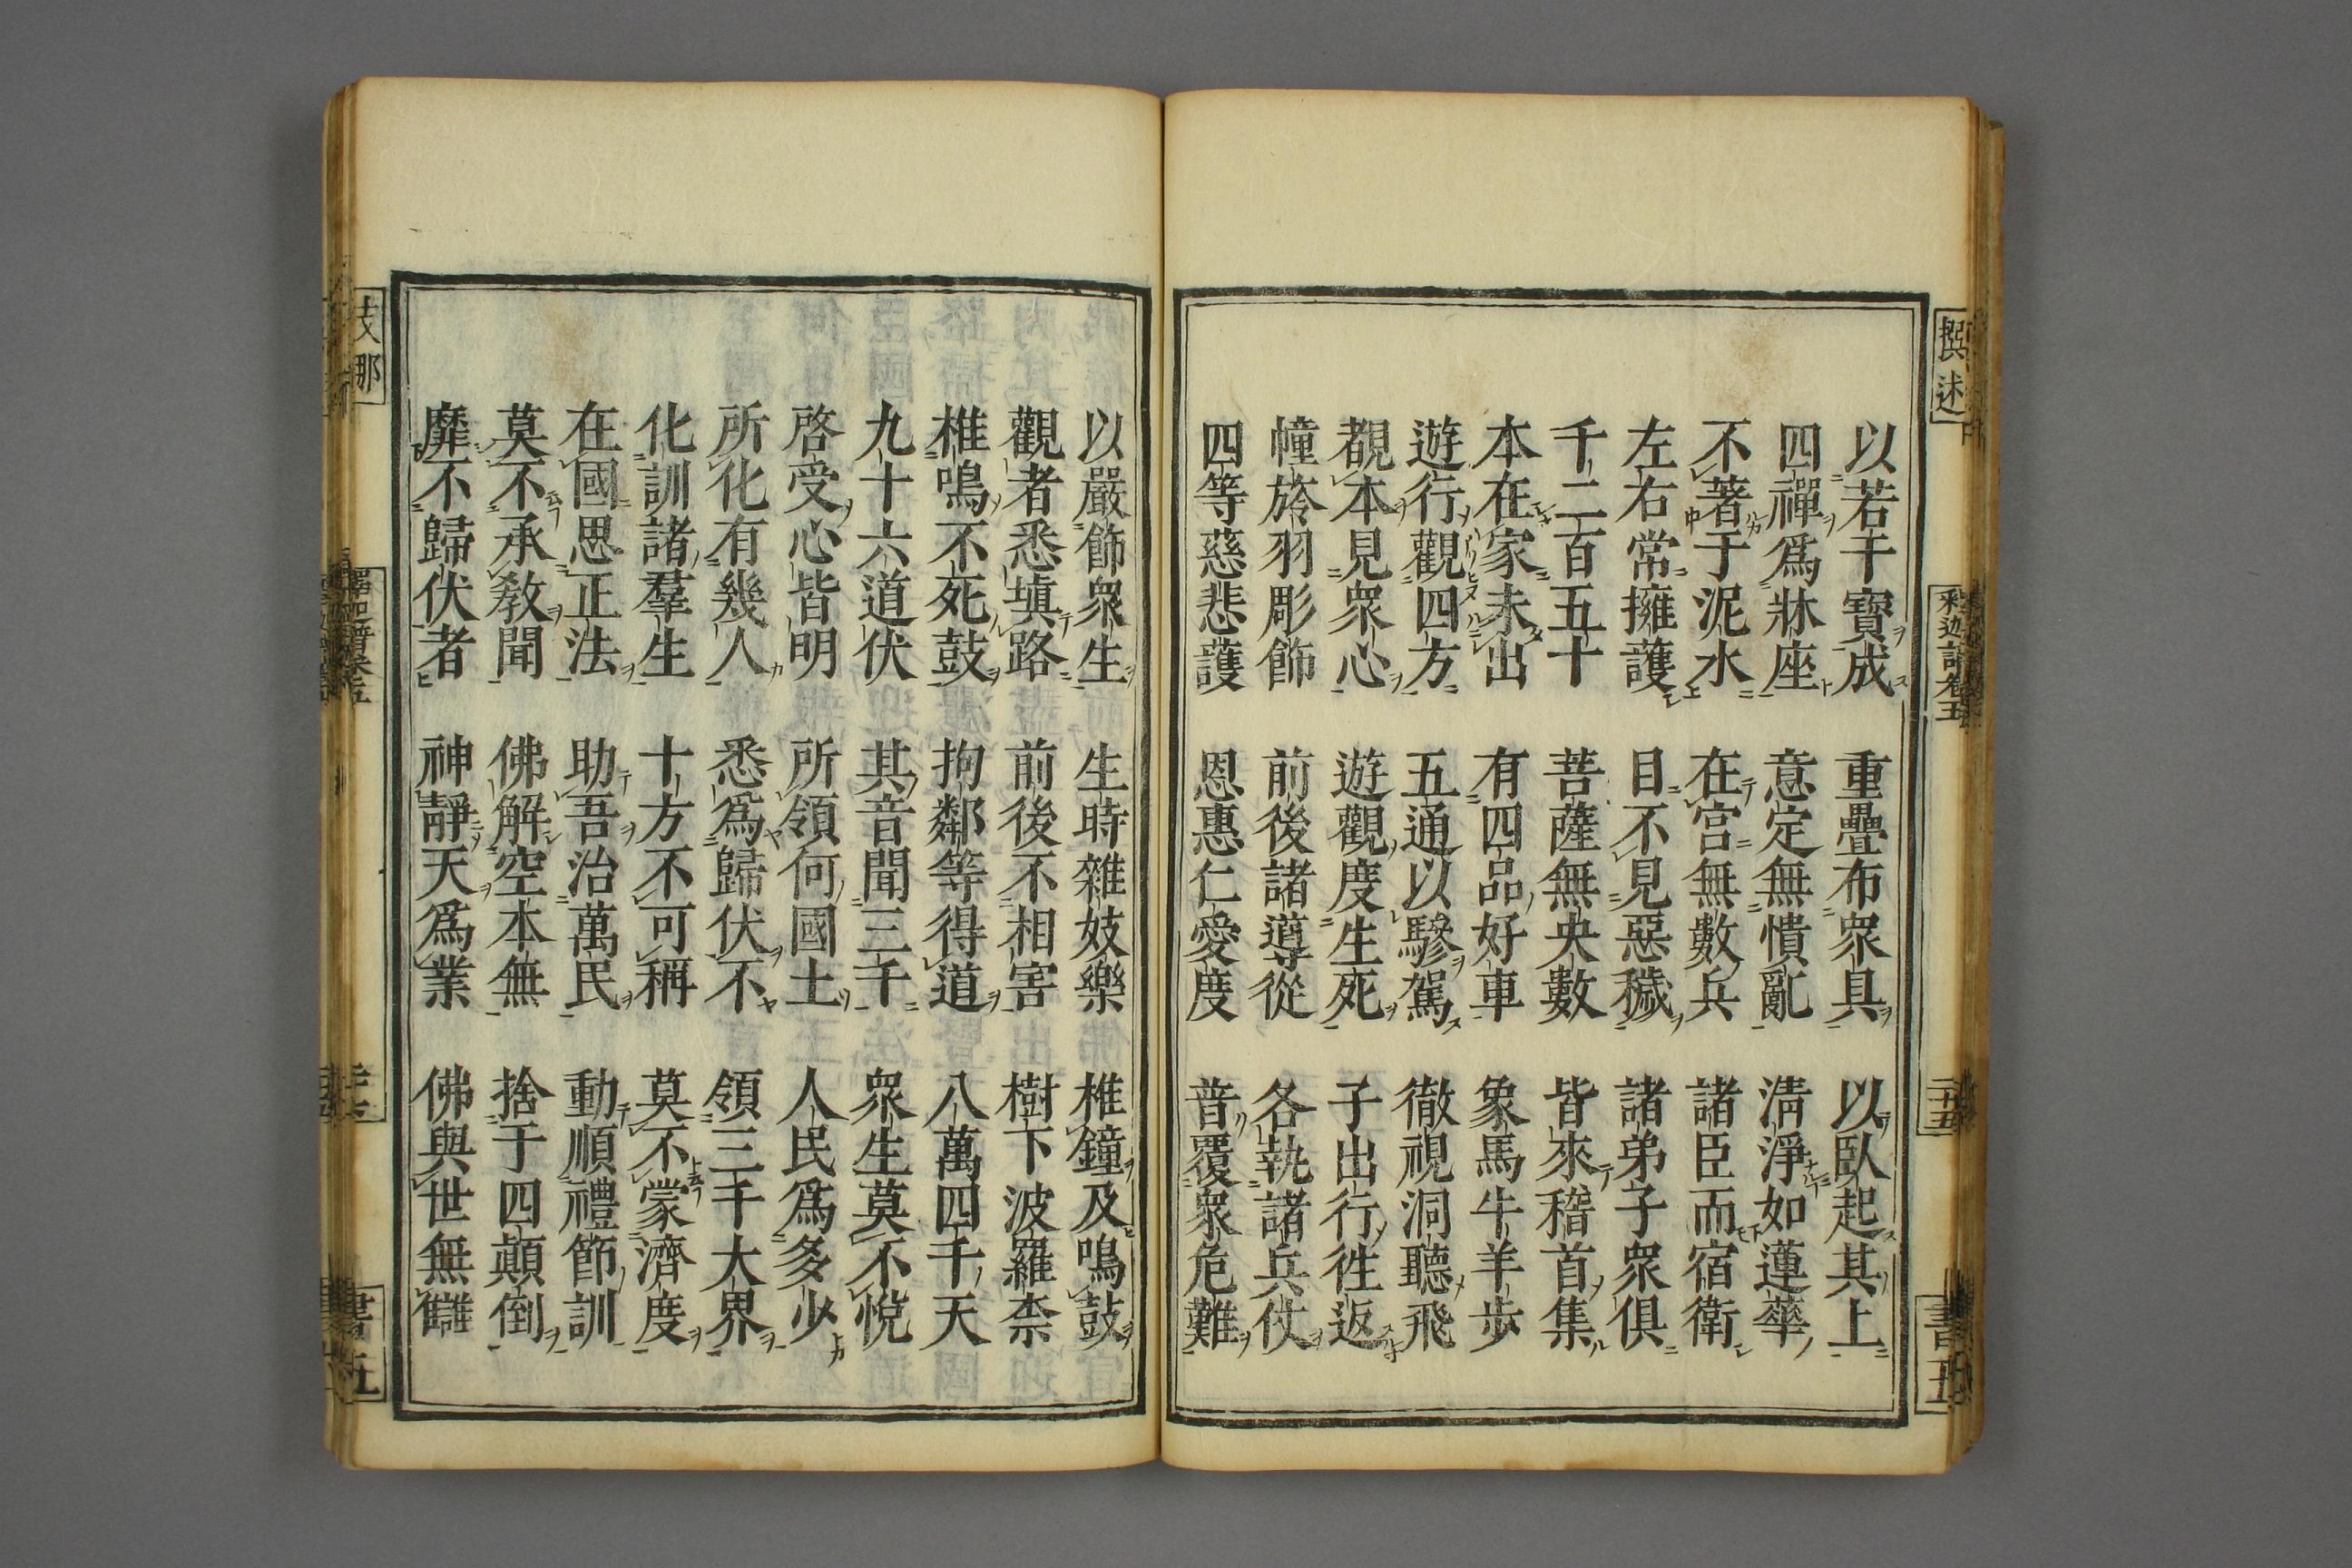 撰述
釈迦譜卷五
二十五
書五
以若干寶成　重疊布衆具　以臥起其上
四禪爲牀座　意定無憒亂　淸淨如蓮華
不著于泥水　在宮無數兵　諸臣而宿衛
左右常擁護　目不見惡穢　諸弟子衆俱
千二百五十　菩薩無央數　皆來稽首集
本在家未出　有四品好車　象馬牛羊步
遊行觀四方　五通以驂駕　徹視洞聽飛
覩本見衆心　遊觀度生死　子出行徃返
幢旍羽彫飾　前後諸導從　各執諸兵仗
四等慈悲護　恩惠仁愛度　普覆衆危難
以嚴飾衆生　生時雜妓樂　椎鐘及鳴鼓
觀者悉塡路　前後不相害　樹下波羅柰
椎鳴不死鼓　拘鄰等得道　八萬四千天
九十六道伏　其音聞三千　衆生莫不悅
啓受心皆明　所領何國土　人民爲多少
所化有幾人　悉爲歸伏不　領三千大界
化訓諸羣生　十方不可稱　莫不蒙濟度
在國思正法　助吾治萬民　動順禮節訓
莫不承敎聞　佛解空本無　捨于四顚倒
靡不歸伏者　神靜天爲業　佛與世無讎
支那